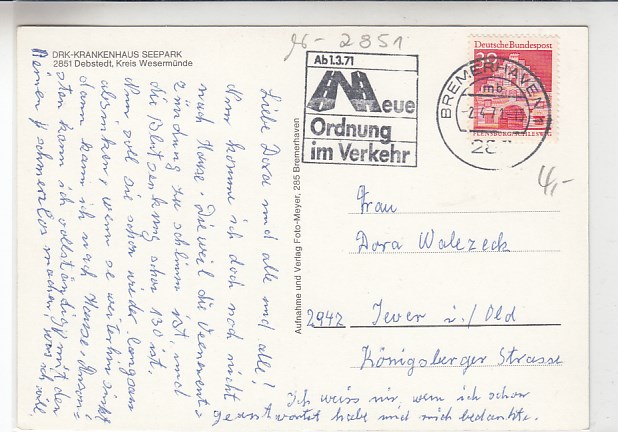 DRK-KRANKENHAUS SEEPARK
2851 Debstedt, Kreis Wesermünde
96-2851
Ab 1.3.71
Neue
Ordnung
im Verkehr
Deutsche Bundespost
30
FLENSBURG/SCHLESWIG
BREMERHAVEN
mb
285
4,-
Liebe Dora und alle und alle!
Nun komme ich doch noch nicht
nach Hause. Dieweil die Venenent=
zündung zu schlimm ist, und
die Blutsenkung schon 130 ist.
Nun soll sie schon wieder langsam
absinken, wenn se weiterhin sinkt
dann kann ich nach Hause,
sten kann ich vollständig mit der
schmerzlos machen was ich will
Aufnahme und Verlag Foto-Meyer, 285 Bremerhaven
Frau
Dora Walezeck
2942 Jever i./Old
Königsberger Strasse
Ich weiss nir, wem ich schon
geantwortet habe und mich bedankte.